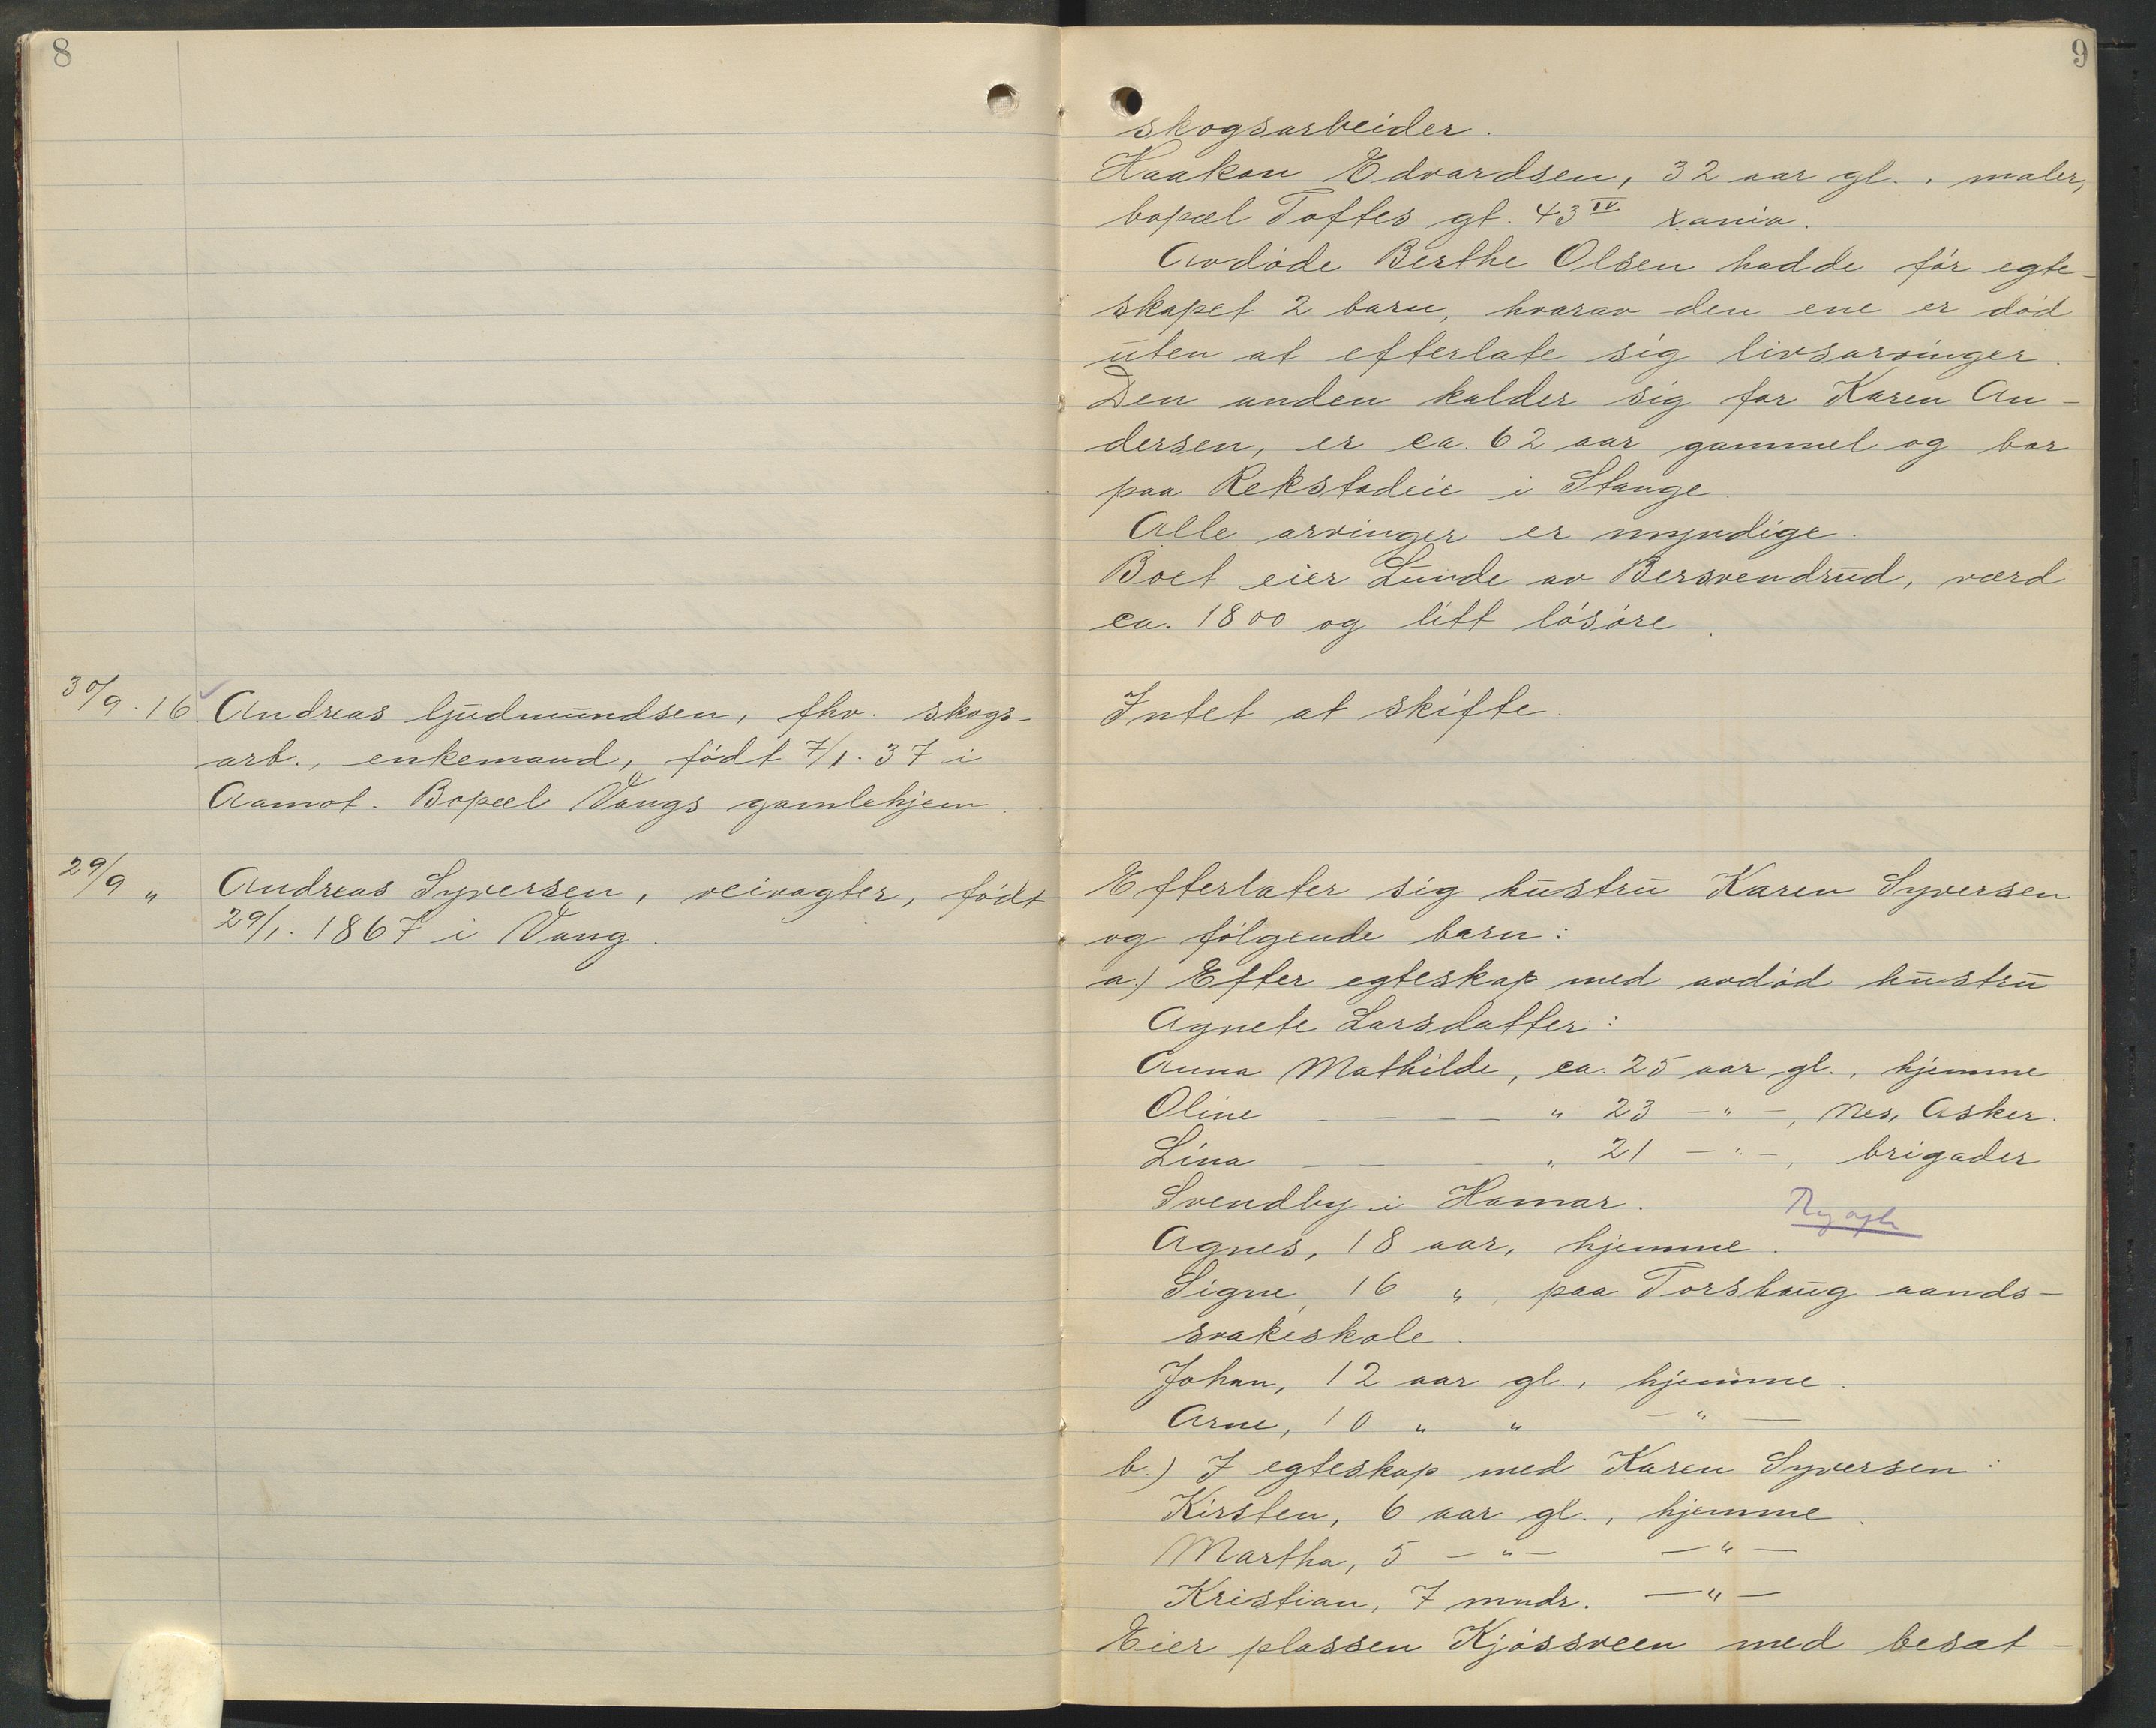 8
30/9. 16. Andreas Gudmundsen, fhv. skogs-
arb., enkemand, født 7/1. 37 i
Aamot. Bopæl Vangs gamlehjem.
29/9 " Andreas Syversen, veivogter, født
29/1. 1867 i Vang.
9
skogsarbeider.
Haakon Edvardsen, 32 aar gl., maler,
bopæl Toftes gt. 43 IV Xania.
Avdøde Berthe Olsen hadde før egte-
skapet 2 barn, hvorav den ene er død
uten at efterlate sig livsarvinger.
Den anden kalder sig for Karen An-
dersen, er ca. 62 aar gammel og bor
paa Rekstadeie i Stange.
Alle arvinger er myndige.
Boet eier Lunde av Bersvendrud, værd
ca. 1800 og litt løsøre.
Intet at skifte.
Efterlater sig hustru Karen Syversen
og følgende barn:
a.) Efter egteskap med avdød hustru
Agnete Larsdatter:
Anna Mathilde, ca. 25 aar gl., hjemme.
Oline - - - - " 23 - " -, Nes, Asker.
Lina - - - " 21 - " -, brigader
Svendby i Hamar.
Agnes, 18 aar, hjemme.
Signe, 16 ", paa Torshaug aands-
svakeskole.
Johan, 12 aar gl., hjemme.
Arne, 10 " " - " -
b.) I egteskap med Karen Syversen:
Kirsten, 6 aar gl., hjemme.
Martha, 5 - " - - " -
Kristian, 7 mndr. - " -
Eier plassen Kjøssveen med besæt-